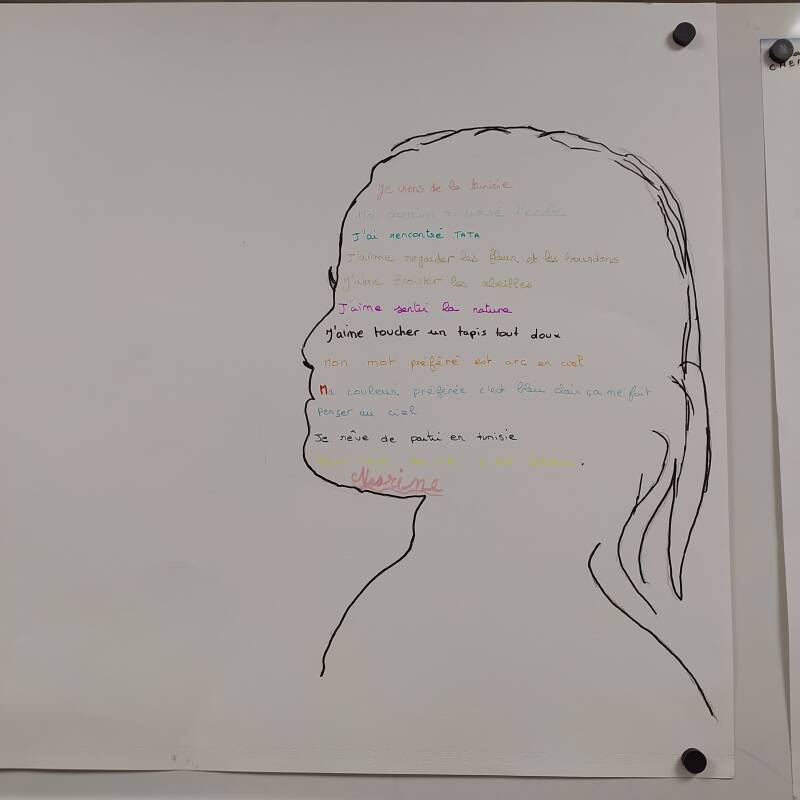 Je viens de la tunisie
Ma a l'école
J'ai rencontré TATA
J'aime regarder les fleur et les bourdons
J'aime écouter les abeilles
J'aime sentir la nature
J'aime toucher un tapis tout doux
Mon mot préféré est arc en ciel
Ma couleur préférée c'est bleu clair ça me fait
penser au ciel
Je rêve de partir en tunisie
Nesrine
CHE